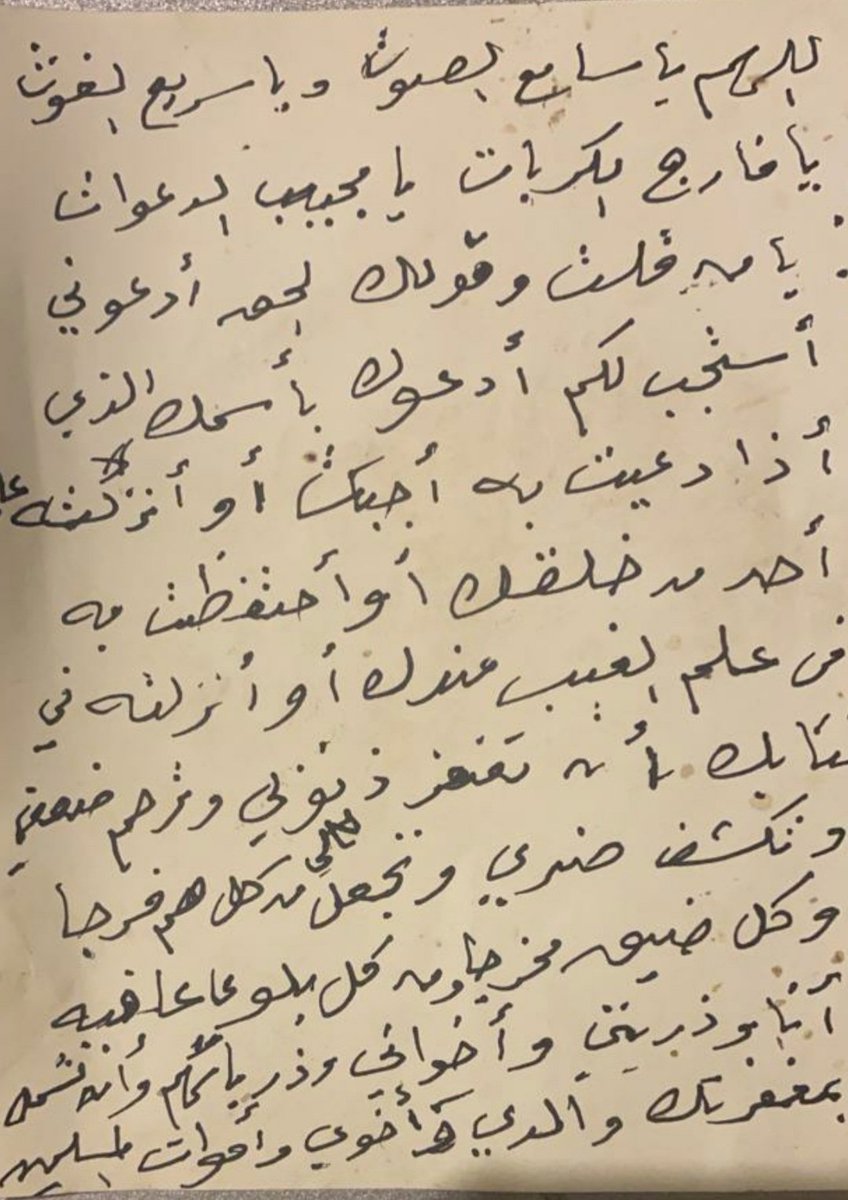 اللهم يا سامع الصوت ويا سريع الغوث
يا فارج الكربات يا مجيب الدعوات
يا من قلت وقولك الحق أدعوني
أستجب لكم أدعوك بأسمك الذي
أذا دعيت به أجبت أو أنزلته
أحد من خلقك أو أحتفظت به
في علم الغيب عندك أو أنزلته في
كتابك بأن تغفر ذنوبي وترحم ضعفي
وتكشف ضري وتجعل لي من كل هم فرجا
وكل ضيق مخرجا ومن كل بلوى عافيه
أنا وذريتي وأخواني وذرياتهم وأن تشمل
بمغفرتك والدي وأخوي وأموات المسلمين